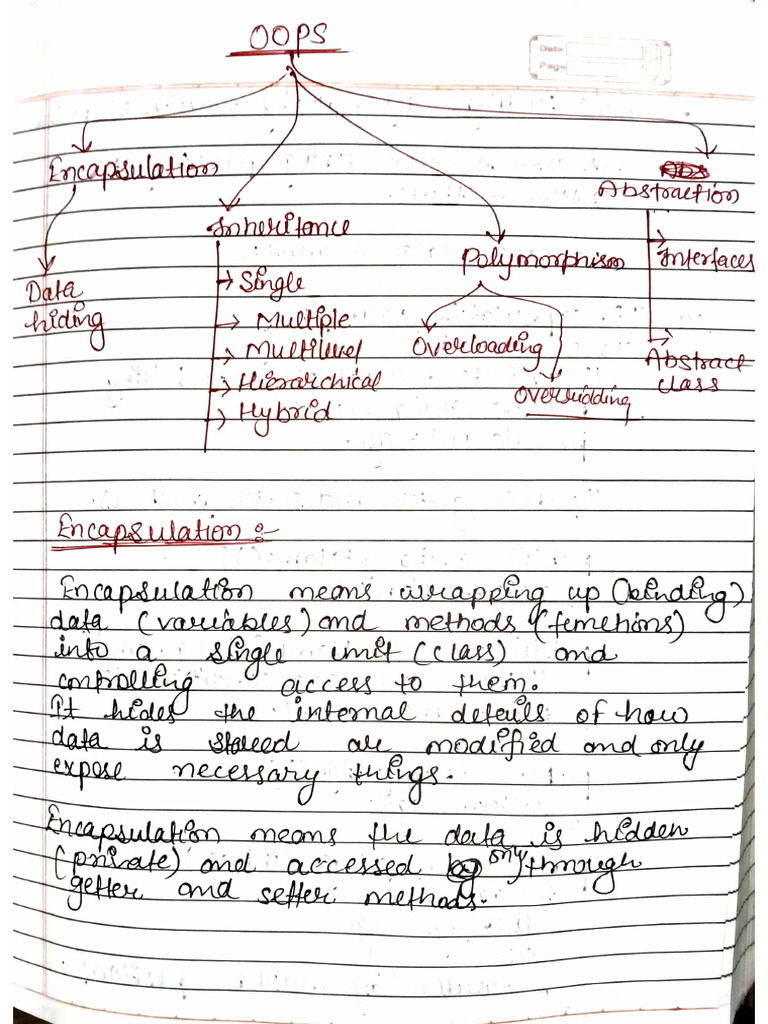 OOPS
Date
Page
Encapsulation
Abstraction
Inheritance
Polymorphism
Interfaces
Data
hiding
Single
Multiple
Multilevel
Hierarchical
Hybrid
Overloading
Overridding
Abstract
class
Encapsulation :-
Encapsulation means wrapping up (binding)
data (variables) and methods (functions)
into a single unit (class) and
controlling access to them.
It hides the internal details of how
data is stored are modified and only
expose necessary things.
Encapsulation means the data is hidden
(private) and accessed only through
getter and setter methods.